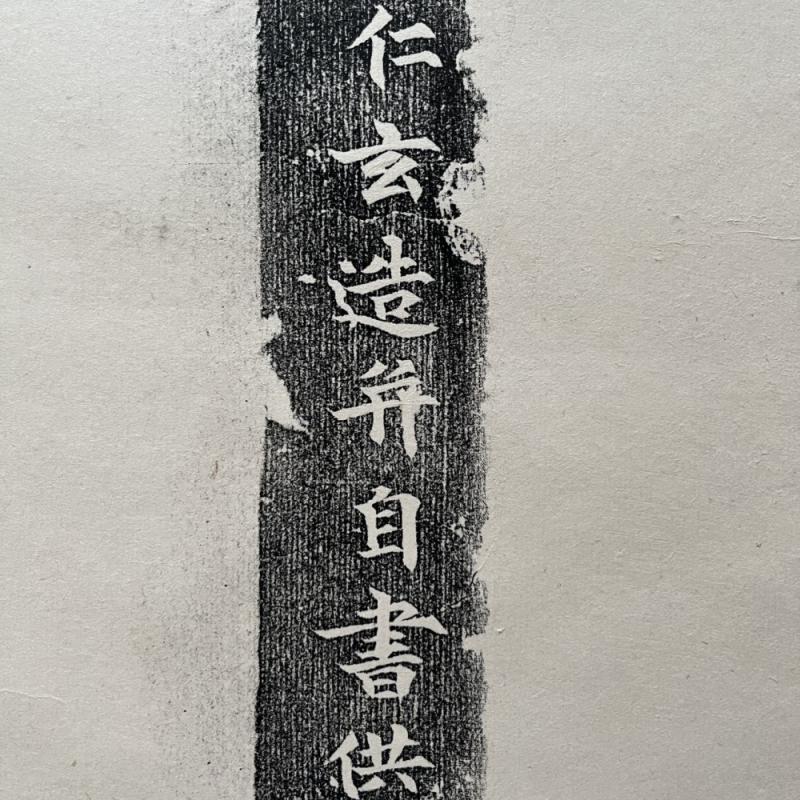 仁玄造并自書供